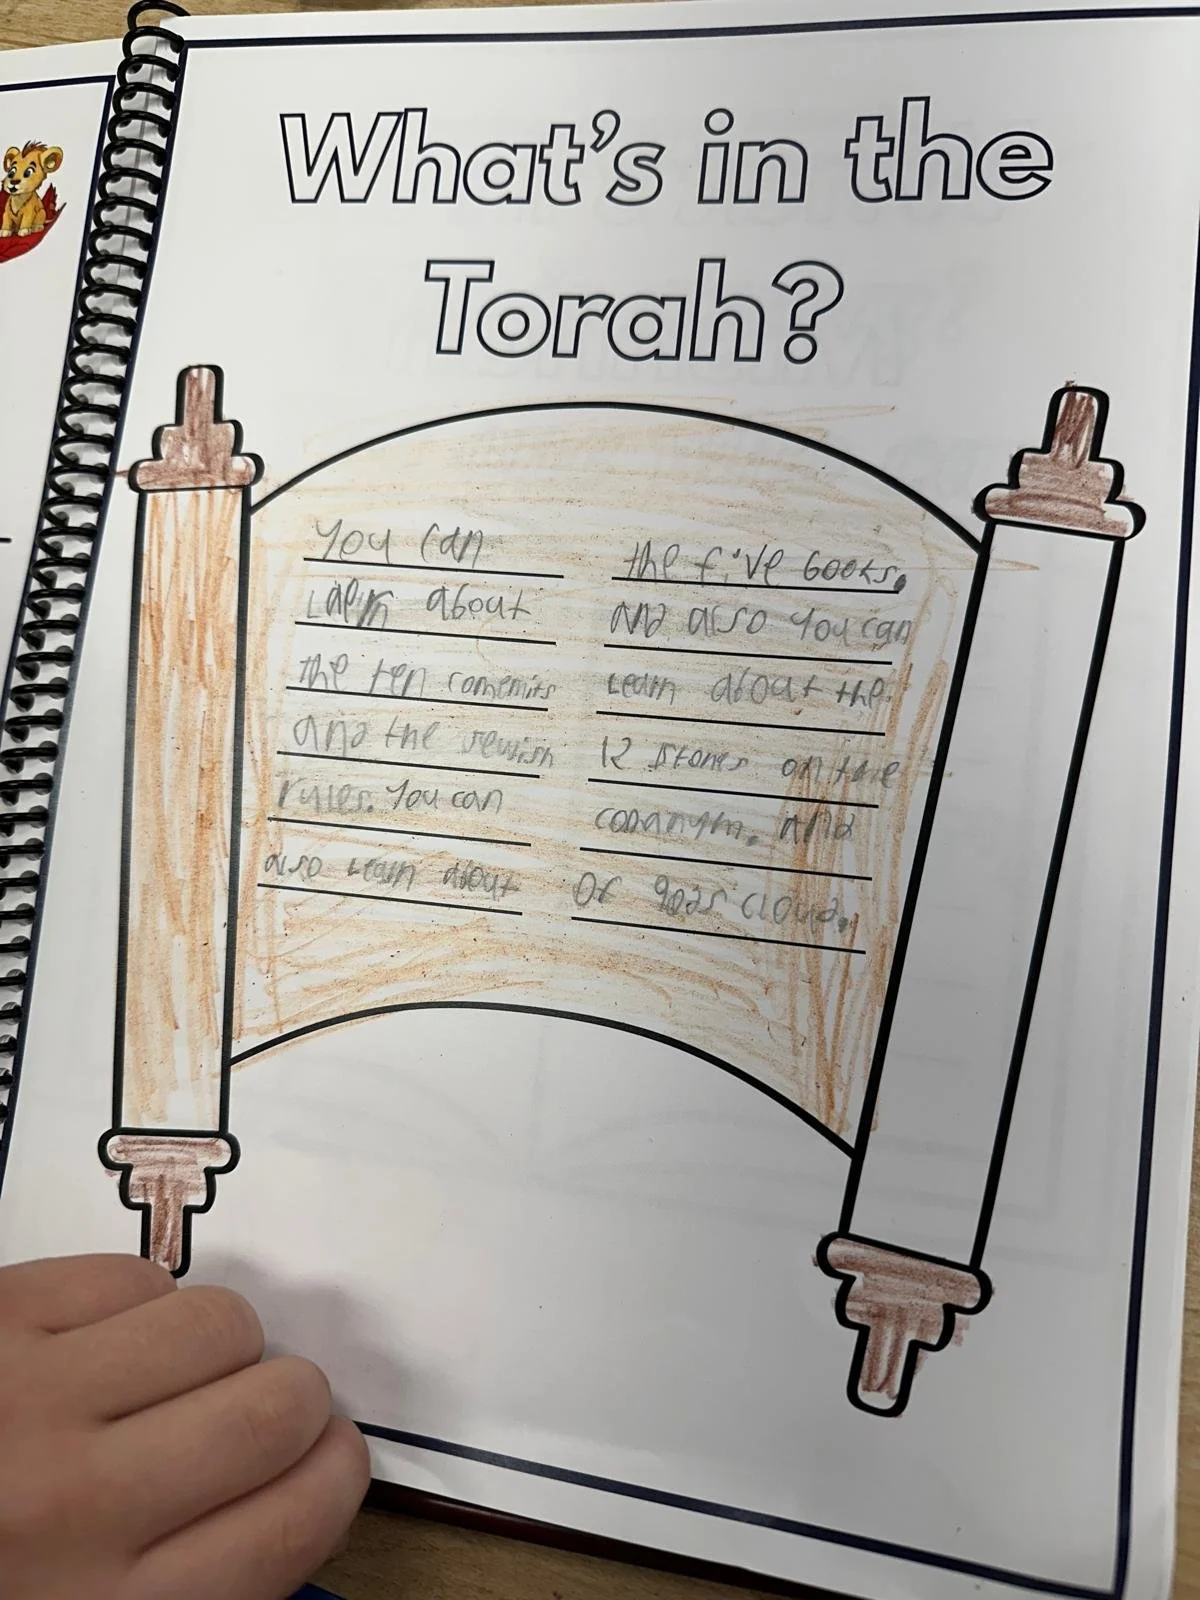 What's in the
Torah?
You can
Learn about
the ten comemits
and the Jewish
rules. You can
also Learn about
the five books.
and also you can
Learn about the
12 stones on the
conanym. and
of gods cloud.